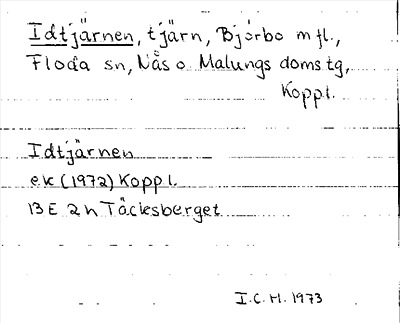 Idtjärnen, tjärn, Björbo m fl.,
Floda sn, Nås o. Malungs doms tg,
Koppl.
Idtjärnen
ek (1972) Koppl.
13 E 2 h Täcksberget
I.C.H. 1973